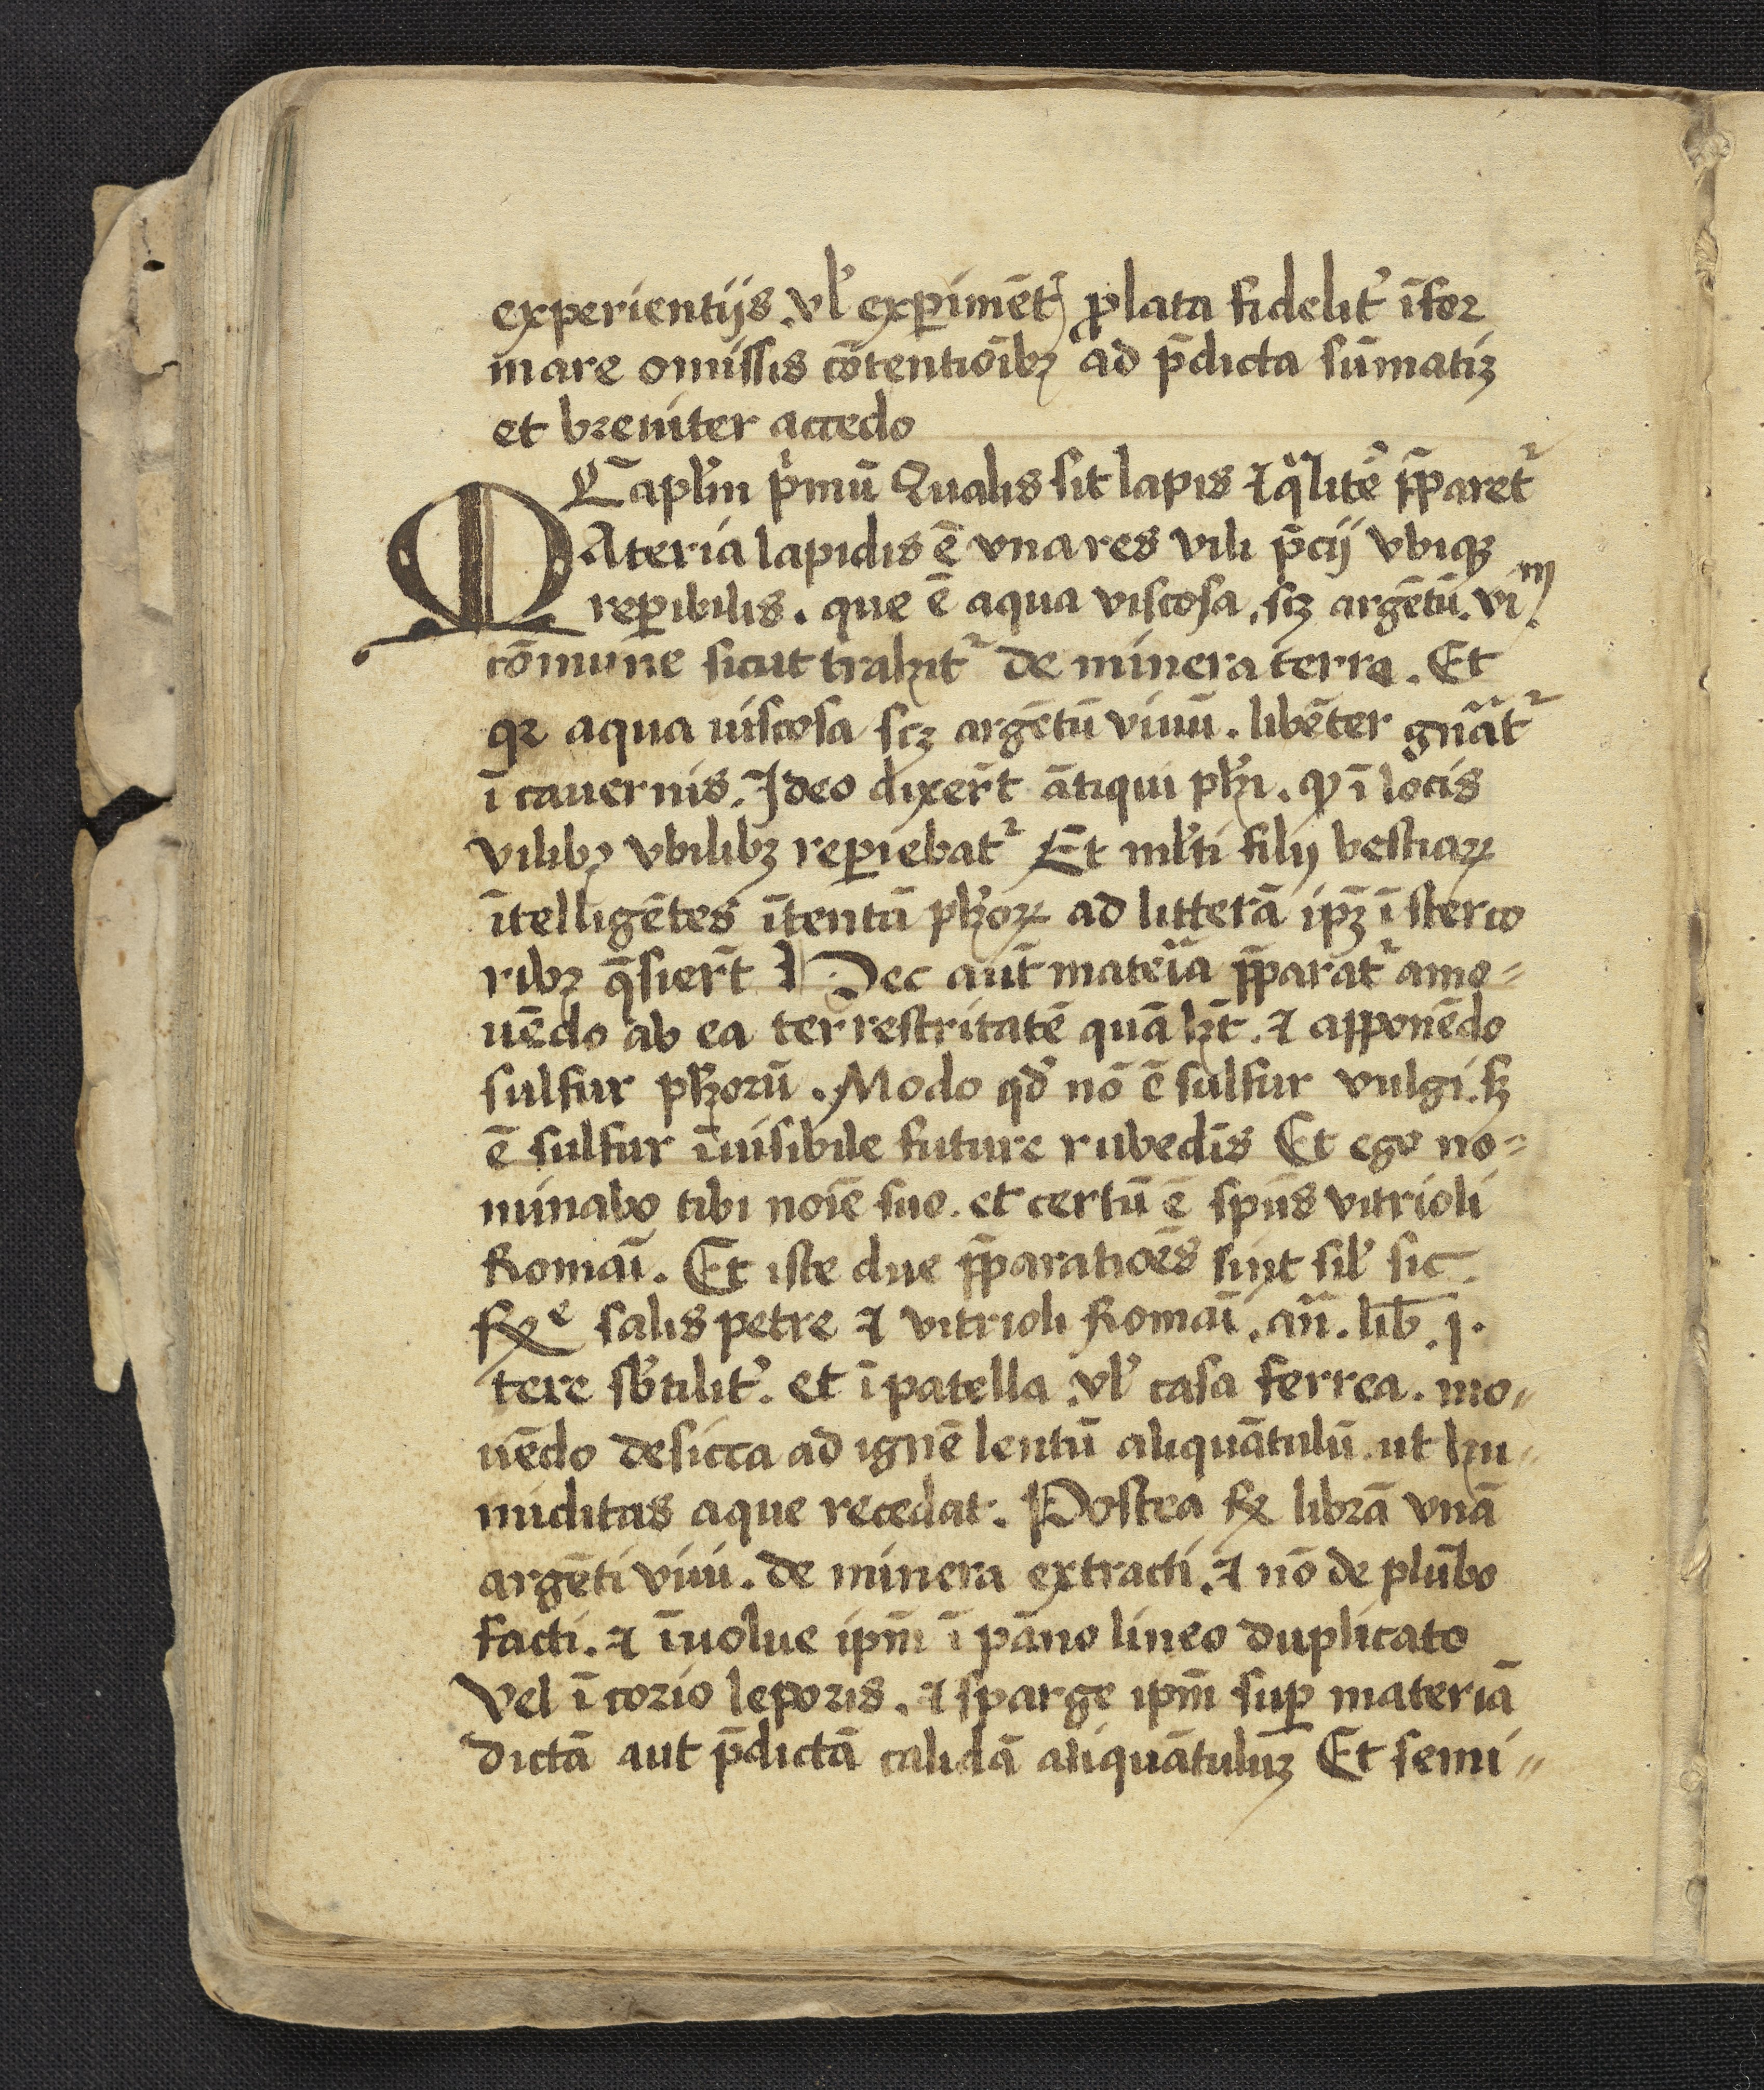 experientijs. vl' exp̱imēt' ꝓlata fidelit' īfor
mare omissis cōtentioībꝫ ad p̄dicta sūmatiꝫ
et breuiter accedo
Cāpl'm pͥmū Qualis sit lapis ⁊ qͣlitē p̄paretr̉
MAteria lapidis ē vna res vili p̄cij vbiqꝫ
rep̱ibilis. que ē aqua viscosa, scꝫ argētū. viᵐ.
cōmune sicut trahit² de minera terre. Et
qꝛ aqua uiscosa scꝫ argētū viuū. libēter gn̄at²
ī cauernis. Ideo dixer̄t ātiqui ph'i. ꝙ ī locis
vilibꝫ vbilibꝫ rep̱iebat² Et ml'ti filij bestiaꝝ
ītelligētes ītentū ph'oꝝ ad litterā ip̄ꝫ ī sterco
ribꝫ q̄sier̄t Hec aut̄ mateīa p̄parat² amo=
uēdo ab ea terrestritatē quā hꝫt. ⁊ apponēdo
sulfur ph'orū. Modo qd' nō ē sulfur vulgi. sꝫ
ē sulfur īuisibile future rubedīs Et ego no=
minabo tibi noīe suo. et certū ē spūs vitrioli
Romaī. Et iste due p̄paratioēs sint sil' sic.
℞ᵉ salis petre ⁊ vitrioli Romaī. an̄. lib̄. j.
tere sb'tilit'. et ī patella vl' casa ferrea. mo〃
uēdo desicca ad ignē lentū aliquātulū ut hu〃
miditas aque recedat. Postea ℞ librā vnā
argēti viui. de minera extracti. ⁊ nō de plūbo
facti. ⁊ īuolue ip̄m ī pāno lineo duplicato
vel ī corio leporis. ⁊ sparge ip̄m sup̱ materiā
dictā aut p̄dictā calidā aliquātulūꝫ Et semi〃